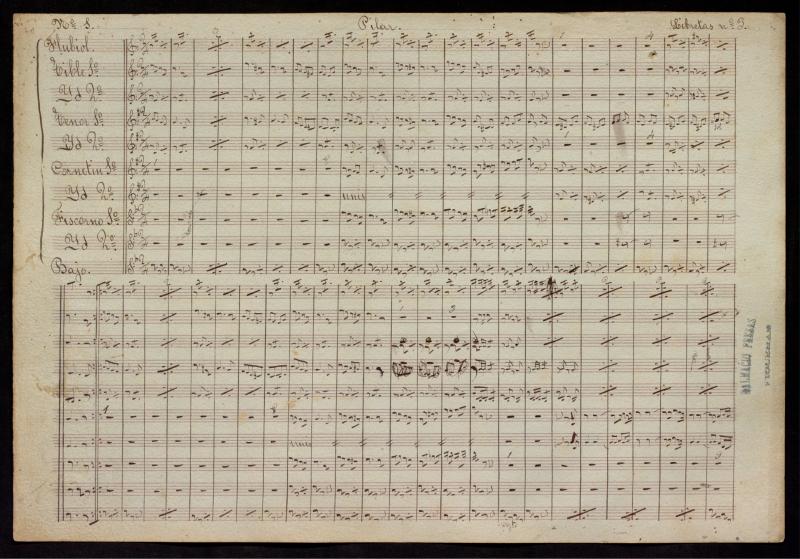 Nº 1. Pilar. Libretas nº 3.
Flubiol.
Tible 1º
Yd 2º
Tenor 1º
Yd 2º
Cornetin 1º
Yd 2º
unis
Fiscorno 1º
Yd 2º
Bajo.
unis